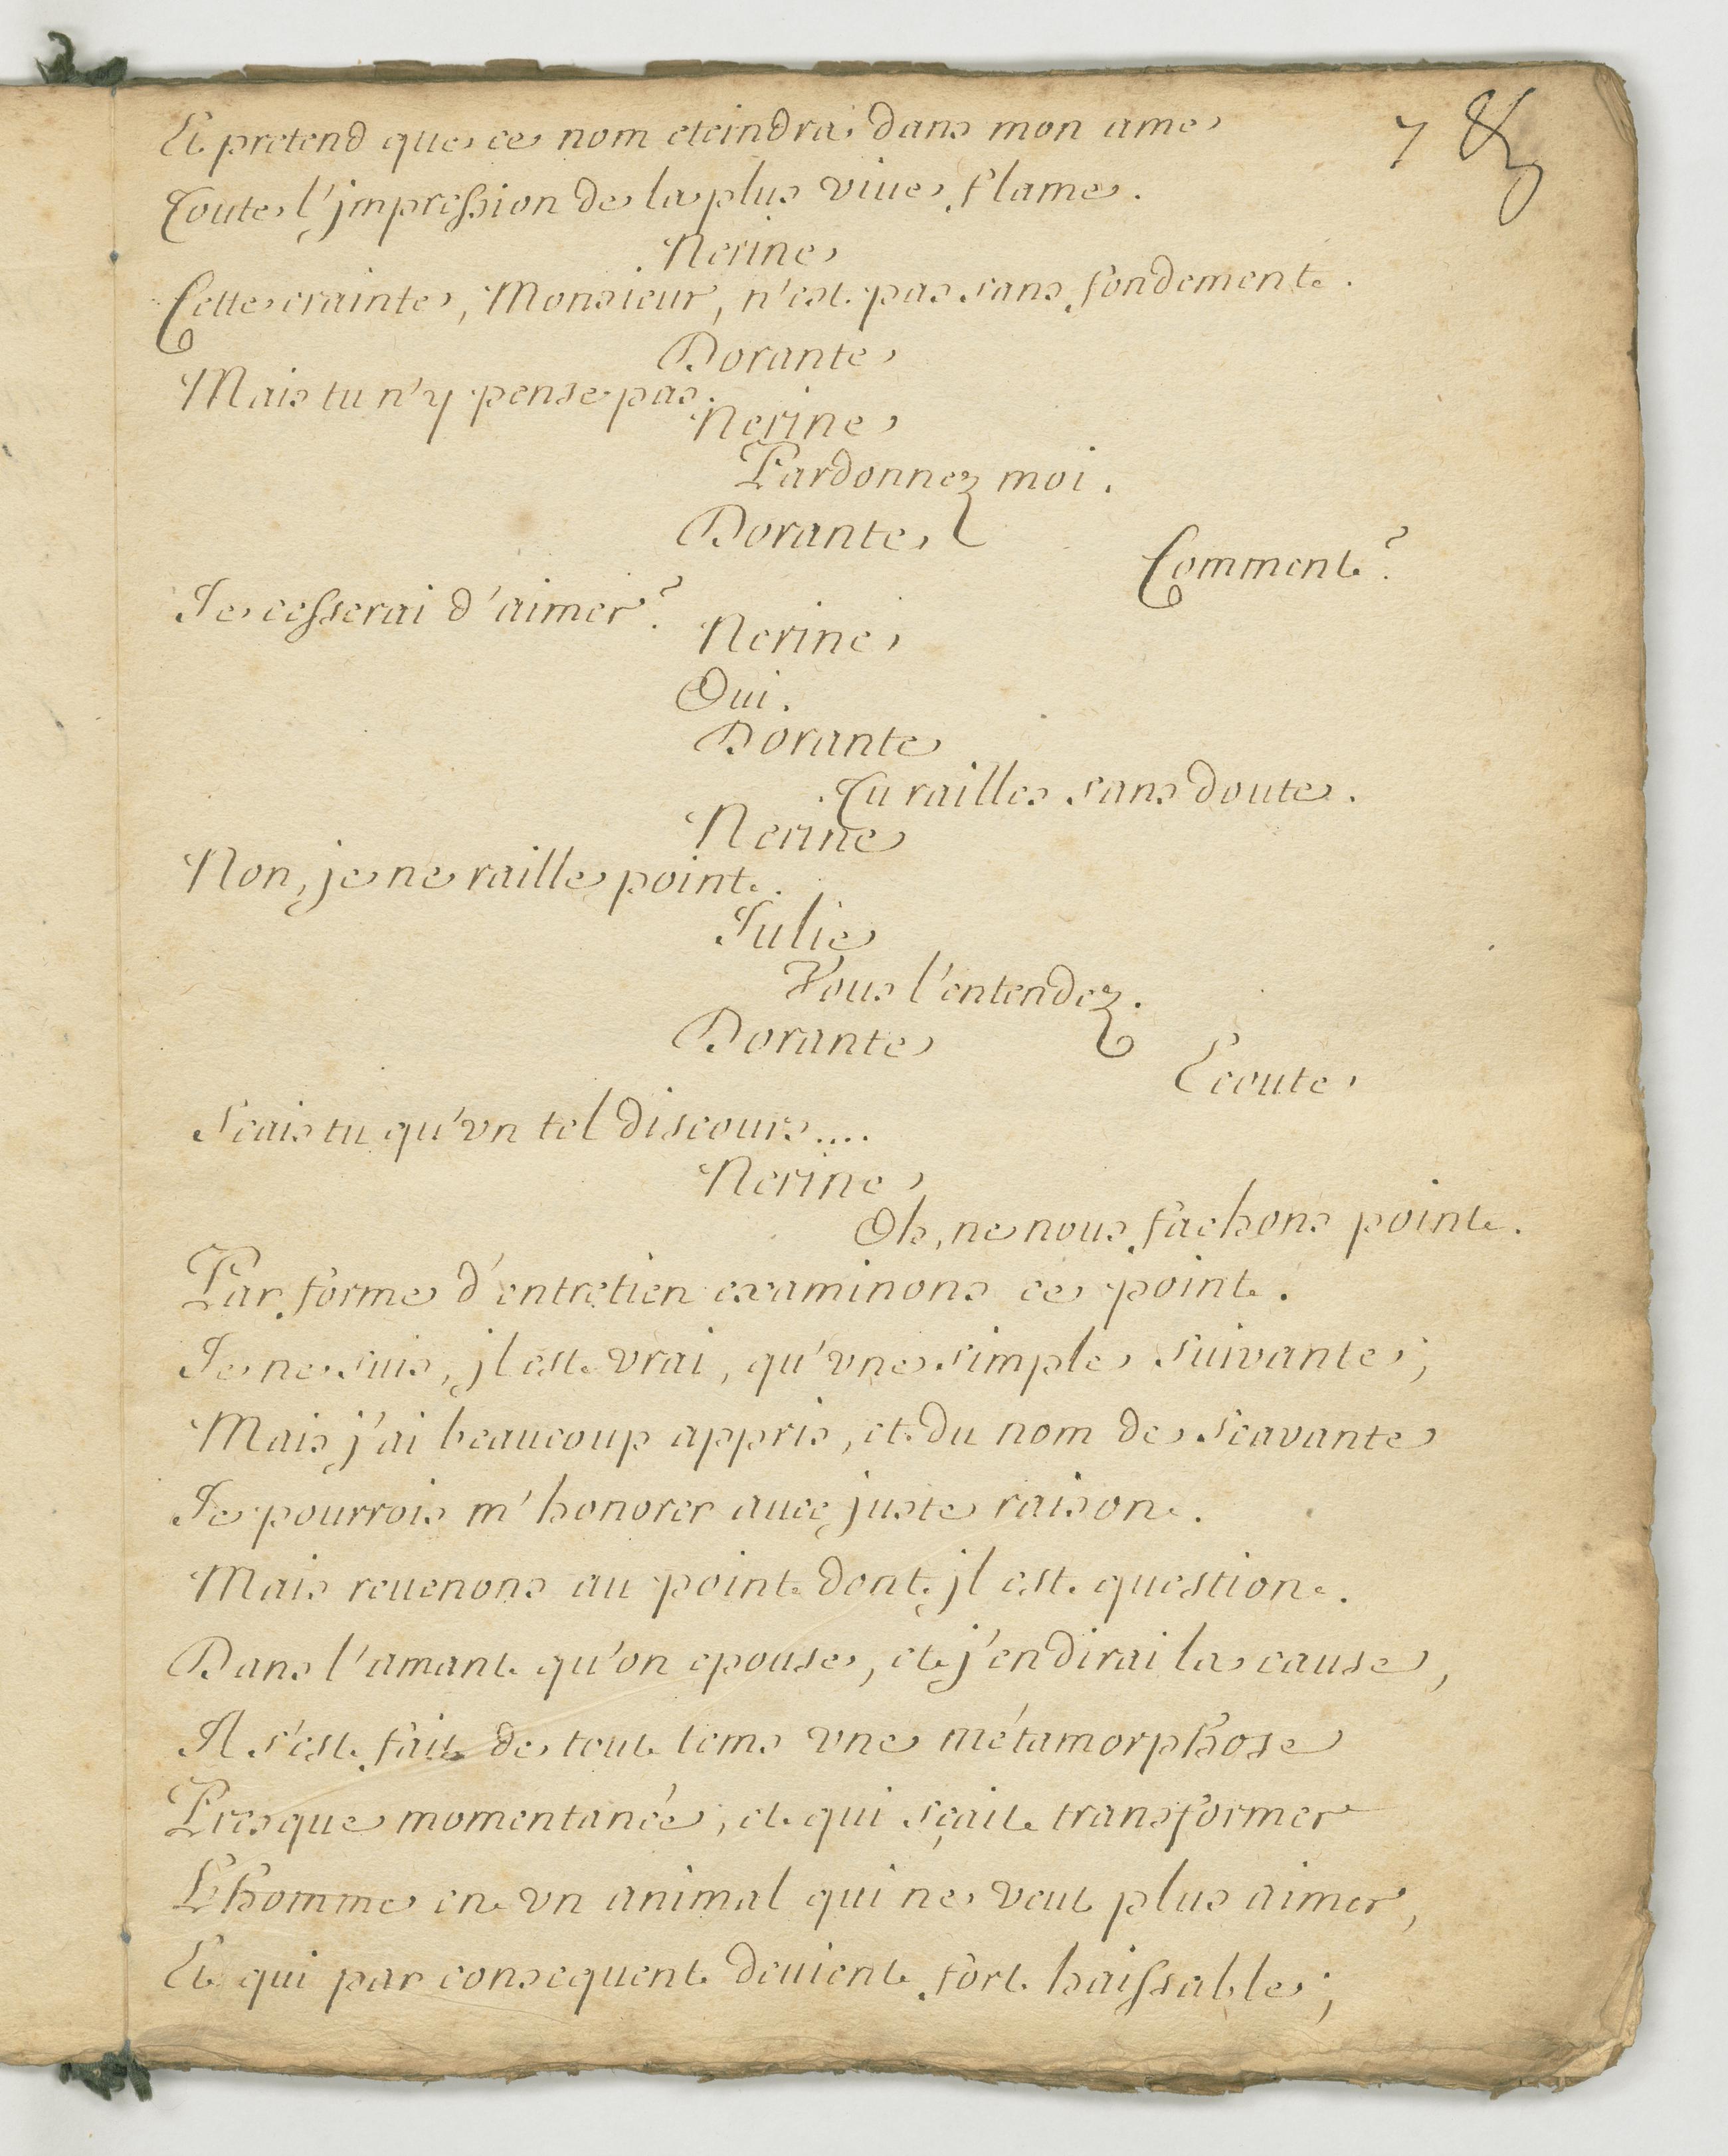 7
Et pretend que ce nom eteindra dans mon ame
Toute l'jmpression de la plus viue flame.
Nerine
Cette crainte, Monsieur, n'est pas sans fondement.
Dorante
Mais tu n'y pense pas.
Nerine
Pardonnez moi.
Dorante
Comment?
Je cesserai d'aimer?
Nerine
Oui.
Dorante
Tu railles sans doute.
Nerine
Non, je ne raille point.
Julie
Vous l'entendez.
Dorante
Ecoute
Scais tu qu'vn tel discours....
Nerine
Oh, ne nous fachons point.
Par forme d'entretien examinons ce point.
Je ne suis, jl est vrai, qu'vne simple suivante;
Mais j'ai beaucoup appris, et du nom de scavante
Je pourrois m'honorer auec juste raison.
Mais reuenons au point dont jl est question.
Dans l'amant qu'on epouse, et j'en dirai la cause,
Il s'est fait de tout tems vne métamorphose
Presque momentanée, et qui sçait transformer
L'homme en vn animal qui ne veut plus aimer,
Et qui par consequent deuient fort haissable;